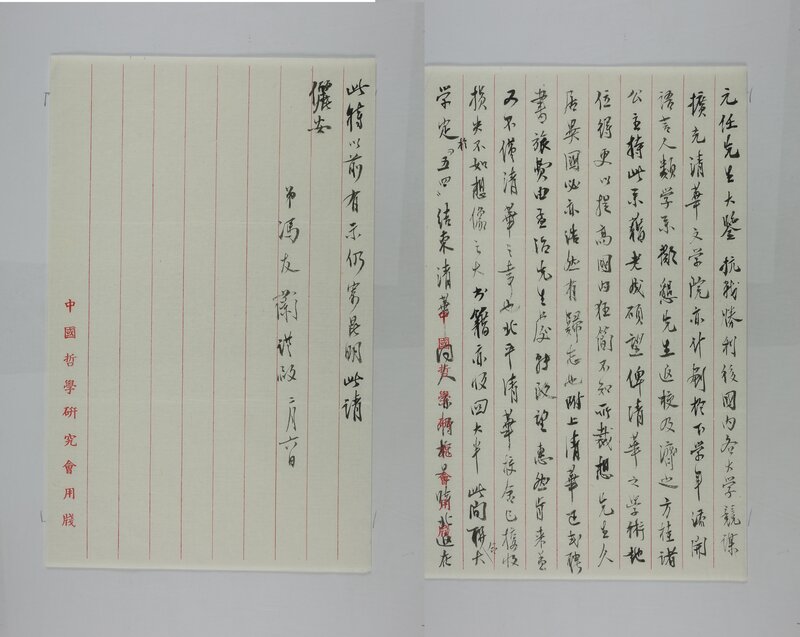 元任先生大鑒抗戰勝利後國内各大学競謀
擴充清華文学院亦計劃於下学年添開
語言人類学系懇先生返校及濟之方桂諸
公主持此系藉光成碩望俾清華之學術地
位得更以提高國内狂簡不知所裁想先生久
居異國必亦浩然有歸志也附上清華正式聘
書旅費由孟治先生處轉致望惠然肯来並
不僅清華之幸也北平清華校舍已接收
損失不如想像之大書籍亦收回大半此間聯大
学定於「五四」結束清華同人於是時北返在
此時以前有示仍寄昆明此請
儷安
弟馮友蘭謹啟二月六日
中國哲學研究會用牋
中國哲學研究會用牋